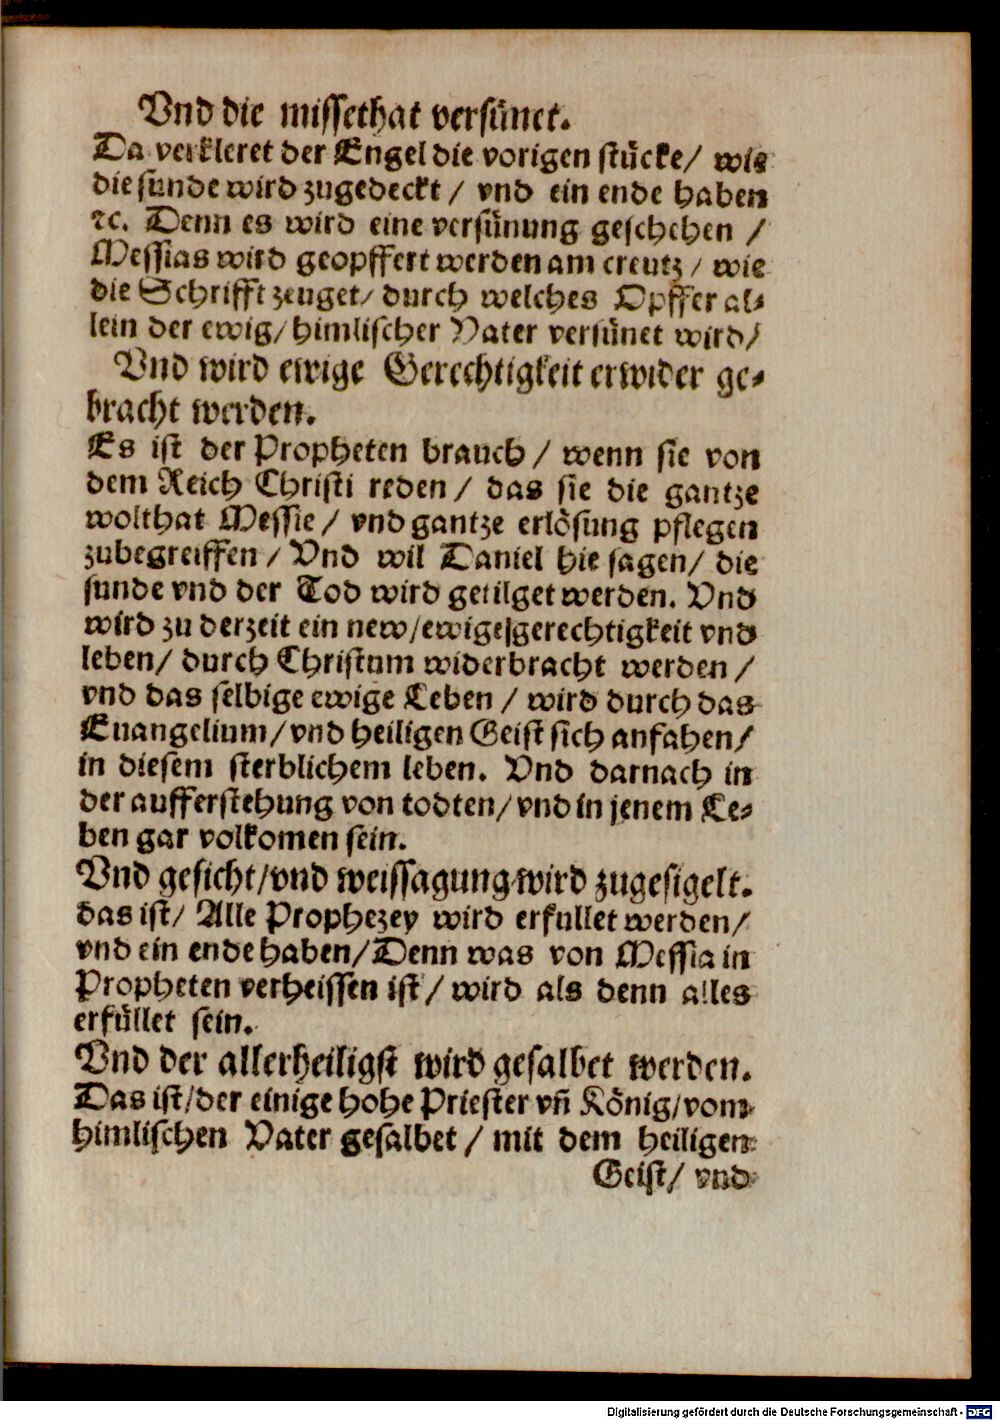 Vnd die missethat versünet.
Da verkleret der Engel die vorigen stücke/ wie
die sunde wird zugedeckt / vnd ein ende haben
ꝛc. Denn es wird eine versünung geschehen /
Messias wird geopffert werden am creutz / wie
die Schrifft zeuget/ durch welches Opffer al⸗
lein der ewig/ himlischer Vater versünet wird/
Vnd wird ewige Gerechtigkeit erwider ge⸗
bracht werden.
Es ist der Propheten brauch / wenn sie von
dem Reich Christi reden / das sie die gantze
wolthat Messie / vnd gantze erlösung pflegen
zubegreiffen / Vnd wil Daniel hie sagen/ die
sunde vnd der Tod wird getilget werden. Vnd
wird zu derzeit ein new/ewige gerechtigkeit vnd
leben/ durch Christum widerbracht werden /
vnd das selbige ewige Leben / wird durch das
Euangelium/ vnd heiligen Geist sich anfahen/
in diesem sterblichem leben. Vnd darnach in
der aufferstehung von todten/ vnd in jenem Le⸗
ben gar volkomen sein.
Vnd gesicht/vnd weissagung wird zugesigelt.
das ist/ Alle Prophezey wird erfullet werden/
vnd ein ende haben/ Denn was von Messia in
Propheten verheissen ist / wird als denn alles
erfüllet sein.
Vnd der allerheiligst wird gesalbet werden.
Das ist/ der einige hohe Priester vn̄ König/ vom
himlischen Vater gesalbet / mit dem heiligen
Geist/ vnd
Digitalisierung gefördert durch die Deutsche Forschungsgemeinschaft - DFG